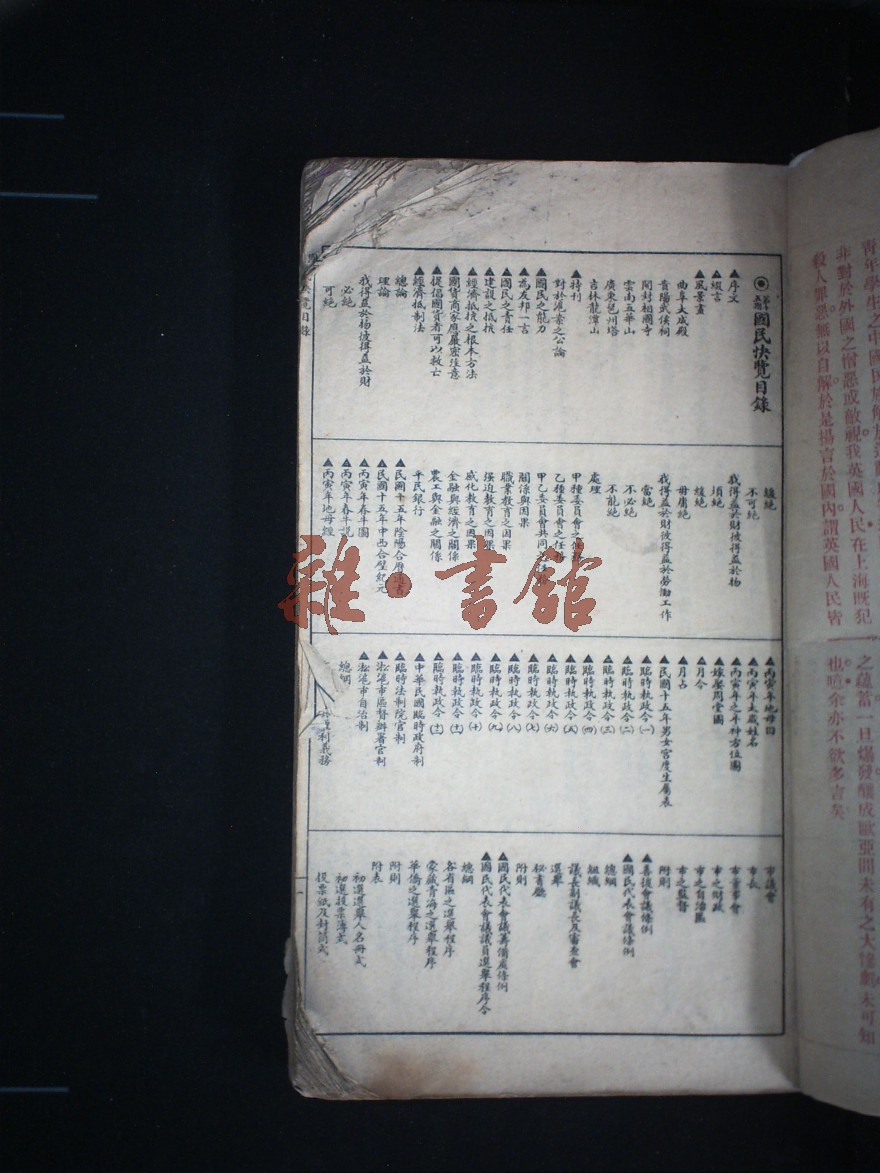 青年學生之中國民族解放運動
非對於外國之憎惡或敵視我英國人民在上海既犯
殺人罪惡無以自解於是揚言於國內謂英國人民皆
之蘊蓄一旦爆發釀成歐亞間未有之大慘劇未可知
也噫余亦不欲多言矣
國民快覽目錄
▲序文
▲緩言
▲風景畫
曲阜大成殿
貴陽武侯祠
開封相國寺
雲南五華山
廣東琶州塔
吉林龍潭山
▲特刊
對於滬案之公論
▲國民之能力
▲為友邦一言
▲國民之責任
▲建設之抵抗
▲經濟抵抗之根本方法
▲國貨商家應嚴密注意
▲提倡國貨者可以救亡
▲經濟抵制法
總論
理論
我得益於物彼得益於財
必絕
可絕
緩絕
不可絕
我得益於財彼得益於物
頃絕
緩絕
毋庸絕
我得益於財彼得益於勞働工作
當絕
不必絕
不能絕
處理
甲種委員會之任務
乙種委員會之任務
甲乙委員會共同之任務
關係與因果
職業教育之因果
強迫教育之因果
感化教育之因果
金融與經濟之關係
農工與金融之關係
平民銀行
▲民國十五年陰陽合曆通書
▲民國十五年中西合璧紀元
▲丙寅年春牛圖
▲丙寅年春牛說
▲丙寅年地母經
▲丙寅年地母圖
▲丙寅年太歲姓名
▲丙寅年之年神方位圖
▲嫁娶周堂圖
▲月令
▲月占
▲民國十五年男女宮度生屬表
▲臨時執政令(一)
▲臨時執政令(二)
▲臨時執政令(三)
▲臨時執政令(四)
▲臨時執政令(五)
▲臨時執政令(六)
▲臨時執政令(七)
▲臨時執政令(八)
▲臨時執政令(九)
▲臨時執政令(十)
▲臨時執政令(十一)
▲臨時執政令(十二)
▲中華民國臨時政府制
▲臨時法制院官制
▲淞滬市區督辦署官制
▲淞滬市自治制
總綱
權利義務
市議會
市長
市董事會
市之財政
市之自治區
市之監督
附則
▲善後會議條例
▲國民代表會議條例
總綱
組織
議長副議長及審查會
選舉
秘書廳
附則
▲國民代表會議籌備處條例
▲國民代表會議議員選舉程序令
總綱
各省區之選舉程序
蒙藏青海之選舉程序
華僑之選舉程序
附則
附表
初選選舉人名冊式
初選投票簿式
投票紙及封筒式
覽目錄
一
雜·書館